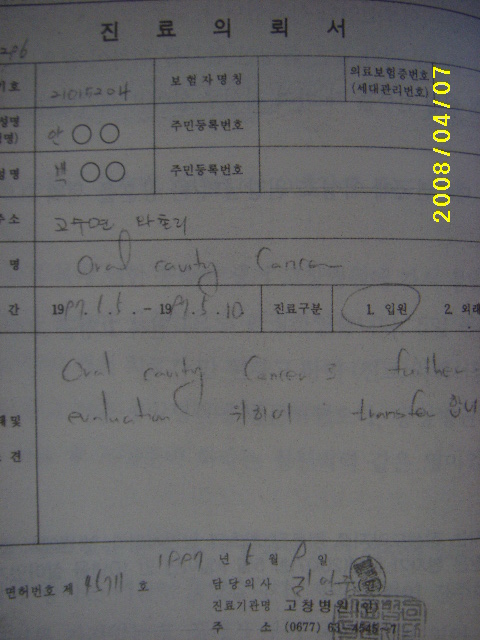 진료의뢰서
296
기호 21015204 보험자명칭 의료보험증번호
(세대관리번호)
안○○ 주민등록번호
백○○ 주민등록번호
주소 고수면
명 Oral cavity Cancer
간 1997. 5. - 1997. 5. 10 진료구분 1. 입원 2. 외래
Oral cavity Cancer로 further
evaluation 위하여 transfer 합니
및
견
1997 년 5 월 일
면허번호 제 호 담당의사
진료기관명 고창병원 (인)
주 소 (0677) 63-
2008/04/07